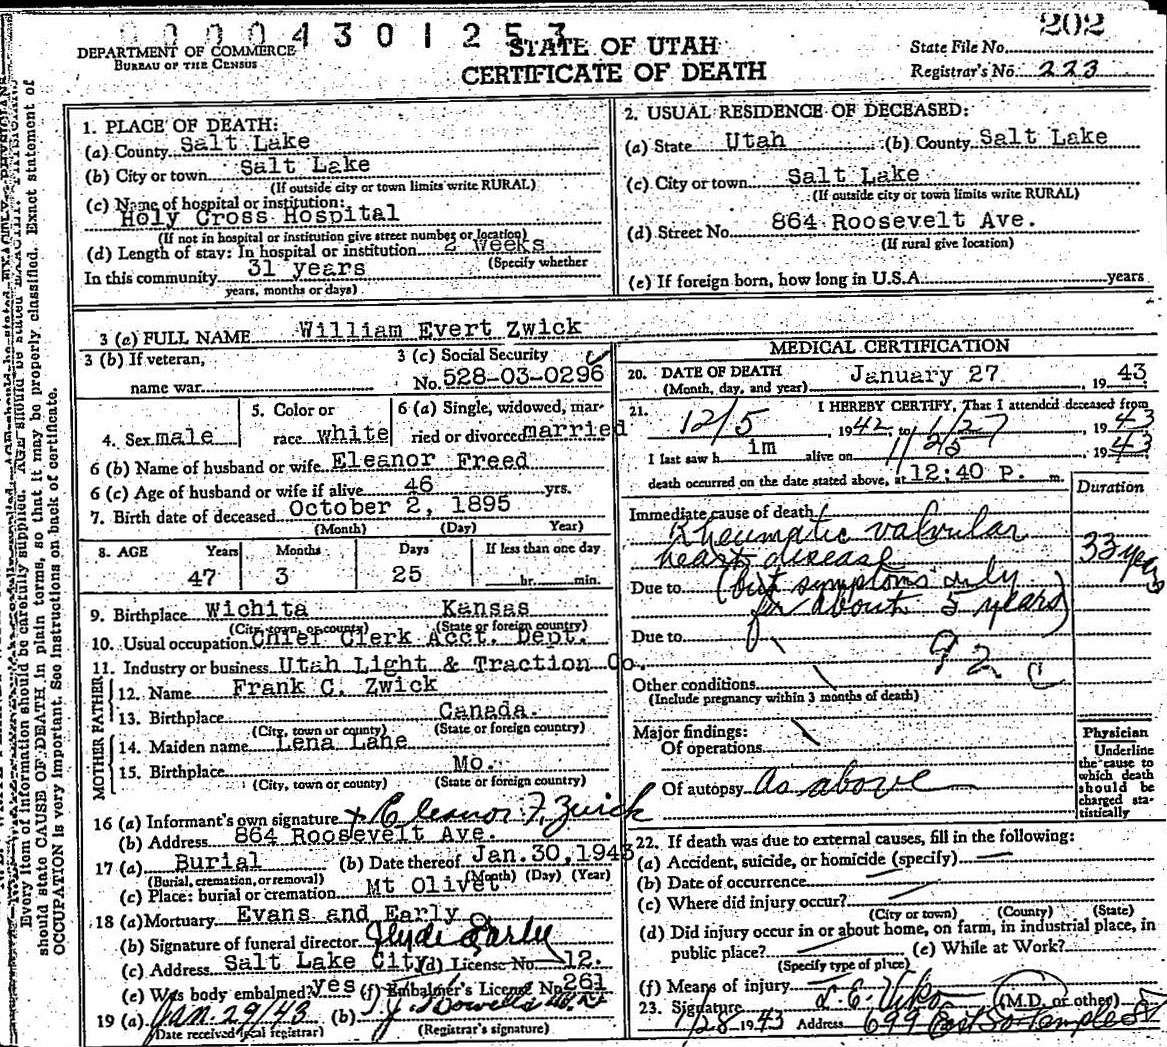 0 0 0 0 4 3 0 1 2 5 3
202
DEPARTMENT OF COMMERCE
BUREAU OF THE CENSUS
STATE OF UTAH
CERTIFICATE OF DEATH
State File No.
Registrar's No. 223
1. PLACE OF DEATH:
(a) County Salt Lake
(b) City or town Salt Lake
(If outside city or town limits write RURAL)
(c) Name of hospital or institution:
Holy Cross Hospital
(If not in hospital or institution give street number or location)
(d) Length of stay: In hospital or institution 2 weeks
(Specify whether
In this community 31 years
years, months or days)
2. USUAL RESIDENCE OF DECEASED:
(a) State Utah (b) County Salt Lake
(c) City or town Salt Lake
(If outside city or town limits write RURAL)
(d) Street No. 864 Roosevelt Ave.
(If rural give location)
(e) If foreign born, how long in U.S.A. years
3 (a) FULL NAME William Evert Zwick
3 (b) If veteran,
name war
3 (c) Social Security
No. 528-03-0296
4. Sex male
5. Color or
race white
6 (a) Single, widowed, mar-
ried or divorced married
6 (b) Name of husband or wife Eleanor Freed
6 (c) Age of husband or wife if alive 46 yrs.
7. Birth date of deceased October 2, 1895
(Month) (Day) Year)
8. AGE Years Months Days If less than one day
47 3 25 hr. min.
9. Birthplace Wichita Kansas
(City, town, or county) (State or foreign country)
10. Usual occupation Chief Clerk Acct. Dept.
11. Industry or business Utah Light & Traction Co.
FATHER
12. Name Frank C. Zwick
13. Birthplace Canada.
(City, town or county) (State or foreign country)
MOTHER
14. Maiden name Lena Lane
15. Birthplace Mo.
(City, town or county) (State or foreign country)
16 (a) Informant's own signature x Eleanor F. Zwick
(b) Address 864 Roosevelt Ave.
17 (a) Burial (b) Date thereof Jan. 30, 1943
(Burial, cremation, or removal) (Month) (Day) (Year)
(c) Place: burial or cremation Mt Olivet
18 (a) Mortuary Evans and Early
(b) Signature of funeral director Clyde Early
(c) Address Salt Lake City (d) License No. 12.
(e) Was body embalmed? yes (f) Embalmer's License No. 261
19 (a) Jan. 29/43 (b)
(Date received local registrar) (Registrar's signature)
MEDICAL CERTIFICATION
20. DATE OF DEATH
(Month, day, and year) January 27, 1943
21. I HEREBY CERTIFY, That I attended deceased from
12/5, 1942 to 1/27 1943
I last saw h im alive on 1/25 1943
death occurred on the date stated above, at 12:40 P. m.
Duration
Immediate cause of death
Rheumatic valvular
heart disease 33 years
Due to (but symptoms only
for about 5 years)
Due to
92 c
Other conditions
(Include pregnancy within 3 months of death)
Major findings:
Of operations
Of autopsy As above
Physician
Underline
the cause to
which death
should be
charged sta-
tistically
22. If death was due to external causes, fill in the following:
(a) Accident, suicide, or homicide (specify)
(b) Date of occurrence
(c) Where did injury occur?
(City or town) (County) (State)
(d) Did injury occur in or about home, on farm, in industrial place, in
public place? (e) While at Work?
(Specify type of place)
(f) Means of injury
23. Signature L. E. Viko (M.D. or other)
1/28 1943 Address 699 East So Temple St
Every item of information should be carefully supplied. AGE should be stated EXACTLY. PHYSICIANS
should state CAUSE OF DEATH in plain terms, so that it may be properly classified. Exact statement of
OCCUPATION is very important. See instructions on back of certificate.